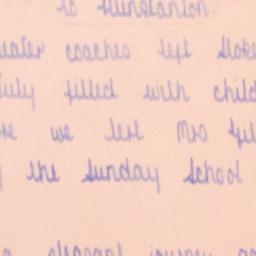 to Hunstanton
coaches left Stoke
July filled with child
we left Mrs
the Sunday School
pleasant journey